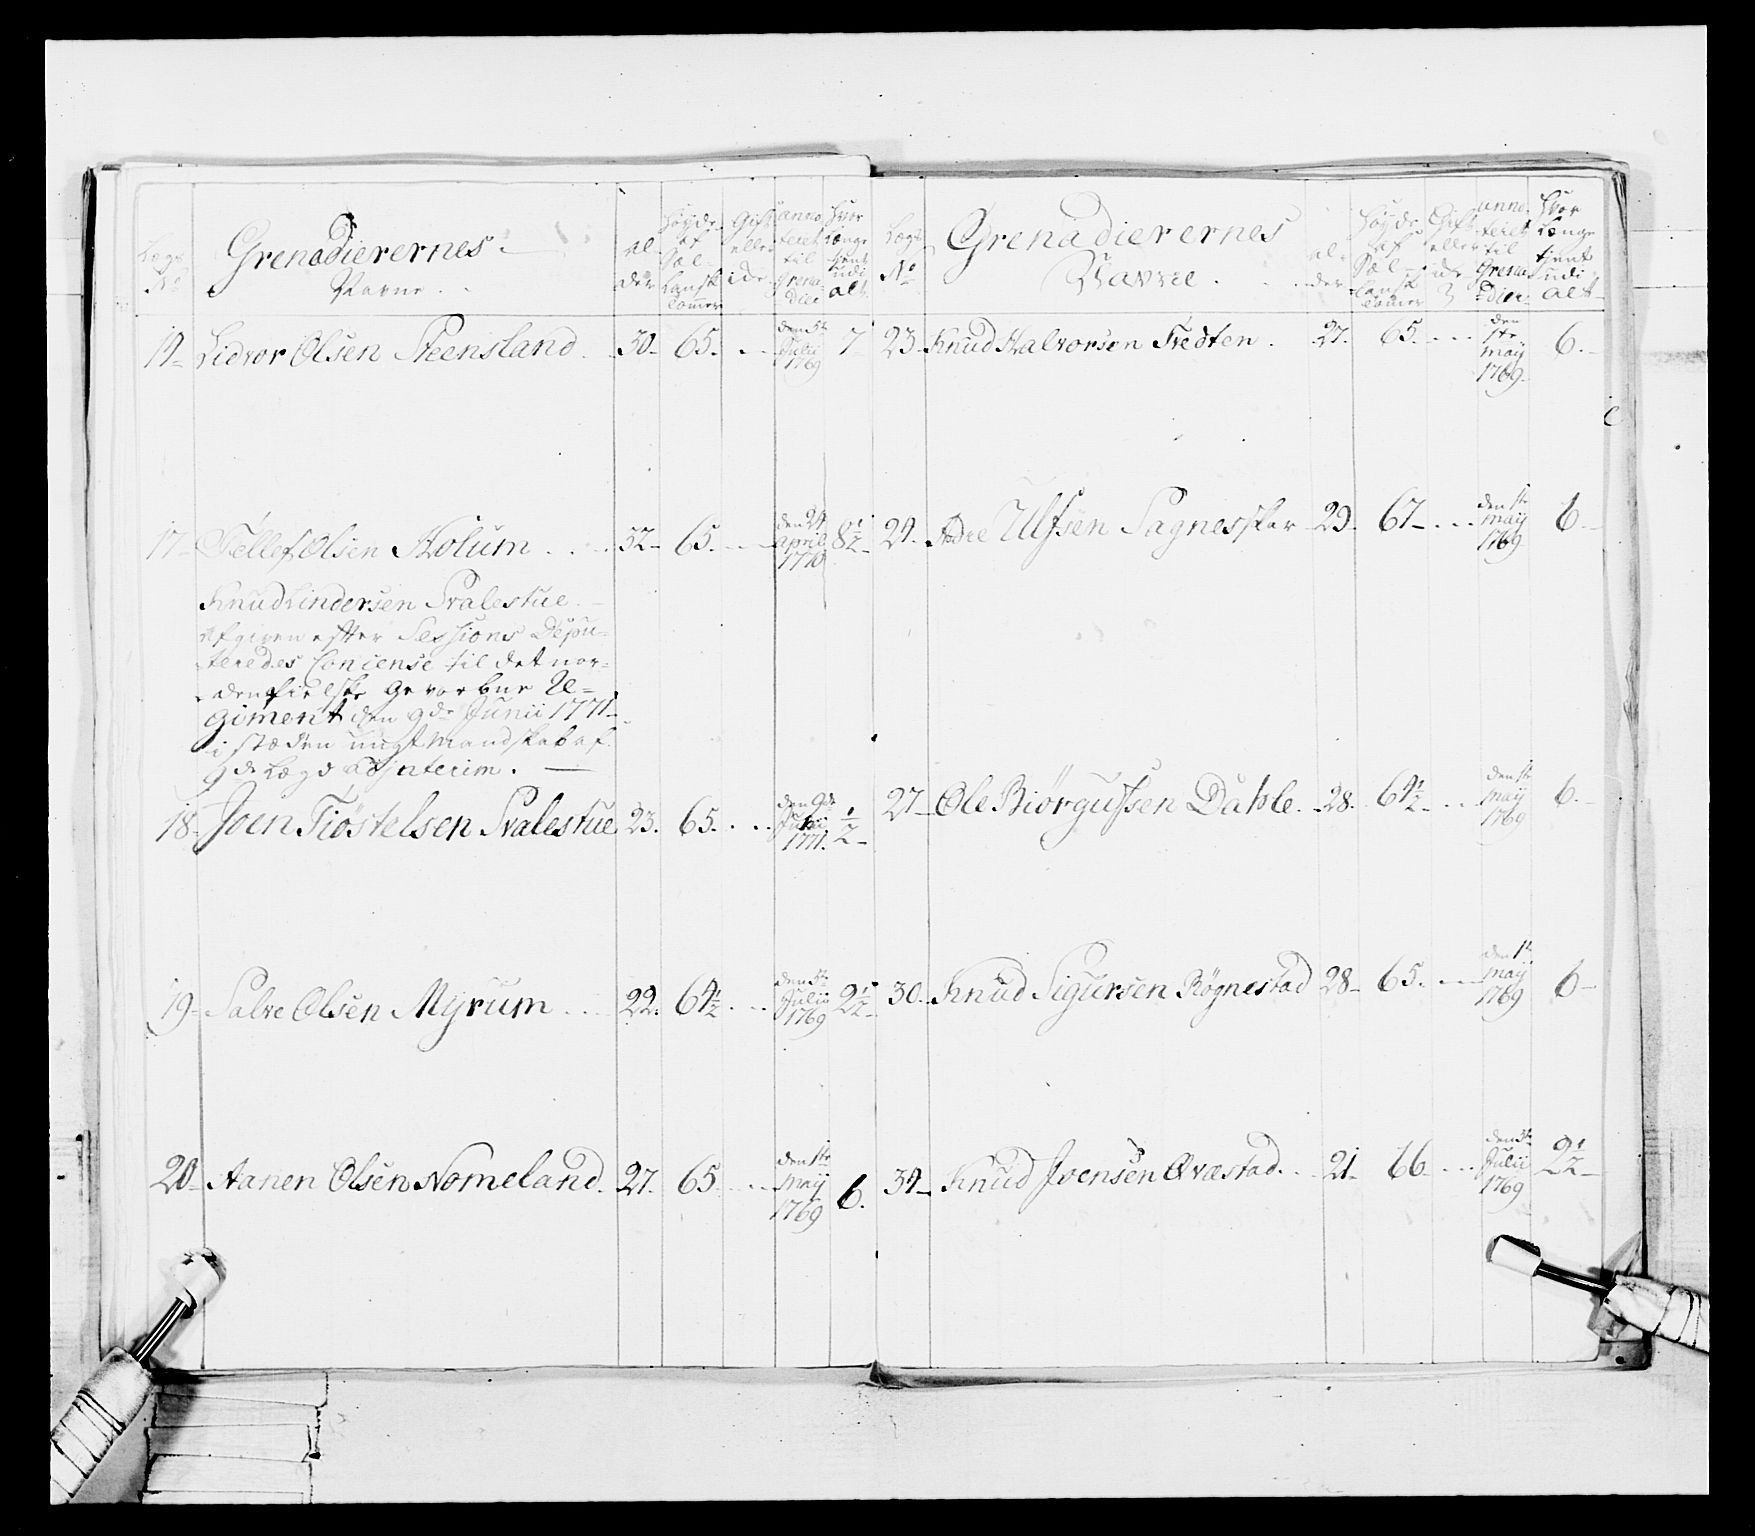 Lægs No
Grenadierernes
Navne.
al-
der
Høyde
af
Sæl-
landsk
tomer
Gift
eller
ide
anno-
teret
til
Grena-
dier
Hvor
længe
tient
udi
alt.
14 Lidvor Olsen Steensland. 30. 65. den 5te Julii 1769 7
17 Tellef Olsen Holum 32 65. den 24 april 1770 8 1/2
Knud Lindersen Svalestue.
Afgiven efter Sessions Depu-
teredes Concense til det nor-
denfielske Gevorbne Re-
giment den 9de Junii 1771
i stæden ungt Mandskab af
9de Lægd adjnterim.
18 Joen Tiøstelsen Svalestue 23. 65. den 9de Julii 1771. 1/2
19 Salve Olsen Myrum 22. 64 1/2 den 5te Julii 1769 2 1/2
20 Aanen Olsen Nomeland. 27. 65 den 1te Maij 1769 6.
Lægs No
Grenadierernes
Navne.
al-
der
Høyde
af
Sæl-
landsk
tomer
Gift
eller
ide
anno-
teret
til
Grena-
dier
Hvor
længe
tient
udi
alt
23 Knud Halvorsen Tvedten. 27. 65. den 1te maij 1769 6.
24. Ulfsen Sagneskar 29. 67 den 1te maij 1769 6
27 Ole Biørgufsen Dahle. 28. 64 1/2 den 1te maij 1769 6.
30. Knud Sigursen Røgnestad 28 65. den 1te maij 1769 6
34 Knud Joensen Qvæstad. 21. 66 den 5te Julii 1769 2 1/2